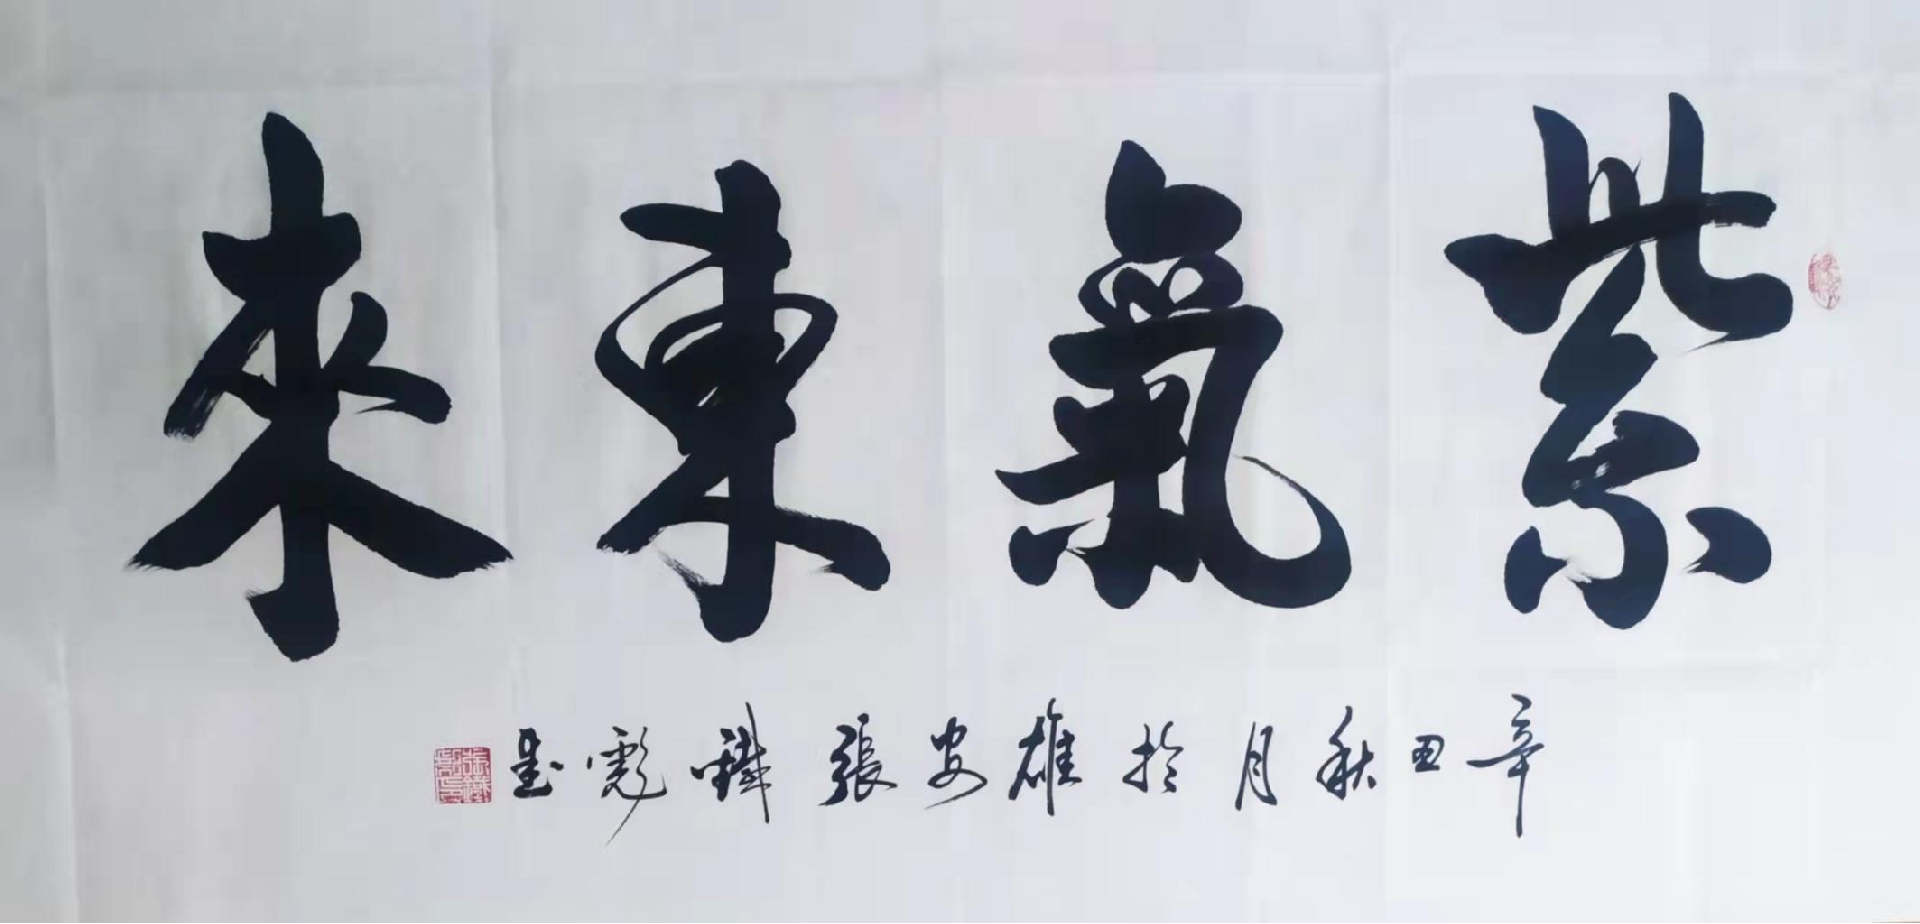 紫氣東来
辛丑秋月於雄安張鐵彪書